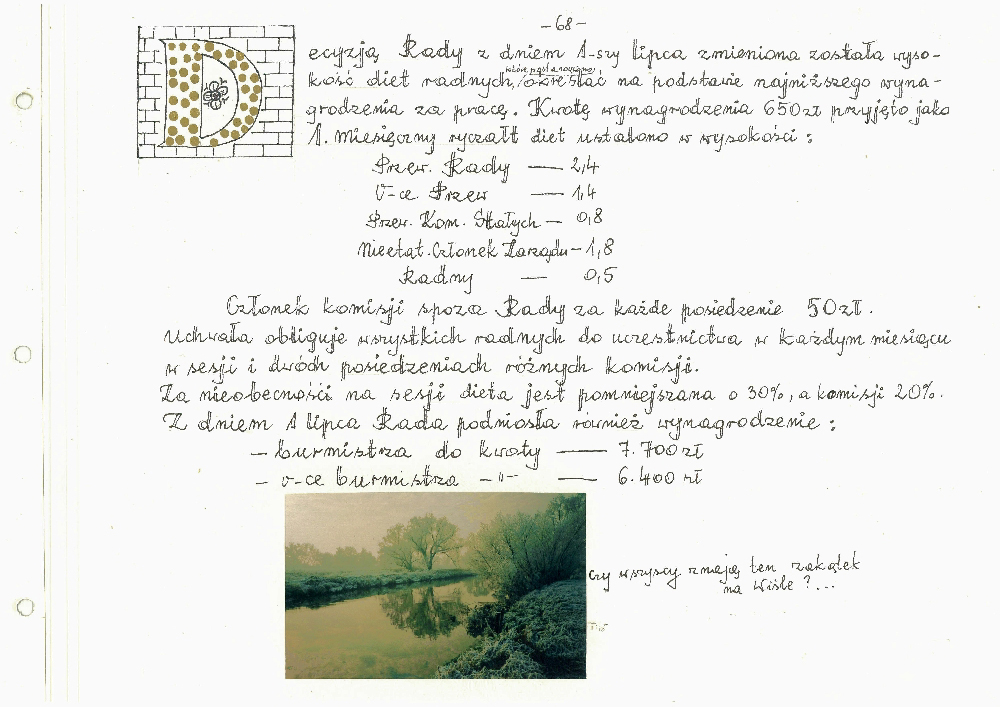 - 68 -
Decyzją Rady z dniem 1-szy lipca zmieniona została wyso-
kość diet radnych, określać na podstawie najniższego wyna-
grodzenia za pracę. Kwotę wynagrodzenia 650zł przyjęto jako
1. Miesięczny ryczałt diet ustalono w wysokości :
Przew. Rady — 2,4
V-ce Przew — 1,4
Przew. Kom. Stałych — 0,8
Nieetat. Członek Zarządu - 1,8
Radny — 0,5
Członek komisji spoza Rady za każde posiedzenie 50zł.
Uchwała obliguje wszystkich radnych do uczestnictwa w każdym miesiącu
w sesji i dwóch posiedzeniach różnych komisji.
Za nieobecność na sesji dieta jest pomniejszana o 30%, a komisji 20%.
Z dniem 1 lipca Rada podniosła również wynagrodzenie :
- burmistrza do kwoty — 7.700 zł
- v-ce burmistrza -"- — 6.400 zł
czy wszyscy znają ten zakątek
na Wiśle ?...